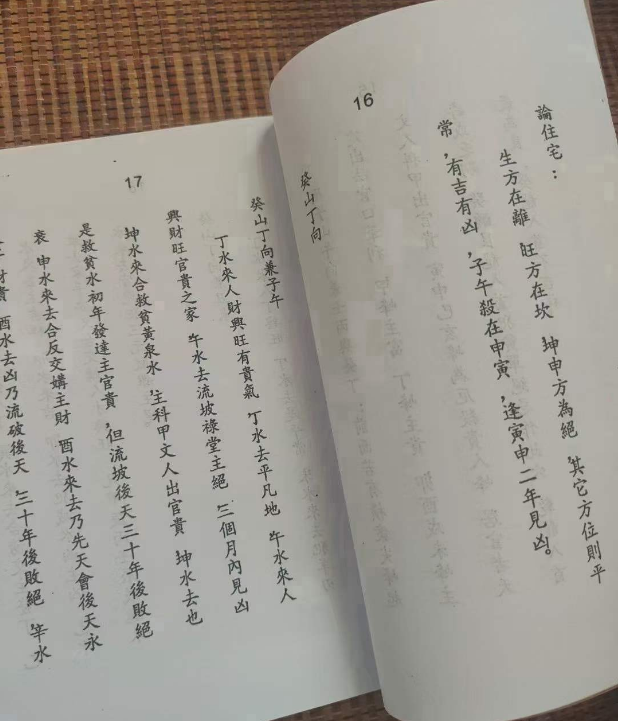 16
論住宅：
生方在離 旺方在坎 坤申方為絕，其它方位則平
常，有吉有凶，子午殺在申寅，逢寅申二年見凶。
癸山丁向
17
癸山丁向兼子午
丁水來人財興旺有貴氣，丁水去平凡地 午水來人
興財旺官貴之家 午水去流坡祿堂主絕，三個月內見凶
坤水來合救貧黃泉水，主科甲文人出官貴 坤水去也
是救貧水初年發達主官貴，但流坡後天三十年後敗絕
衰 申水來去合反交媾主財 酉水來去乃先天會後天永
財貴 酉水去凶乃流破後天，三十年後敗絕，辛水